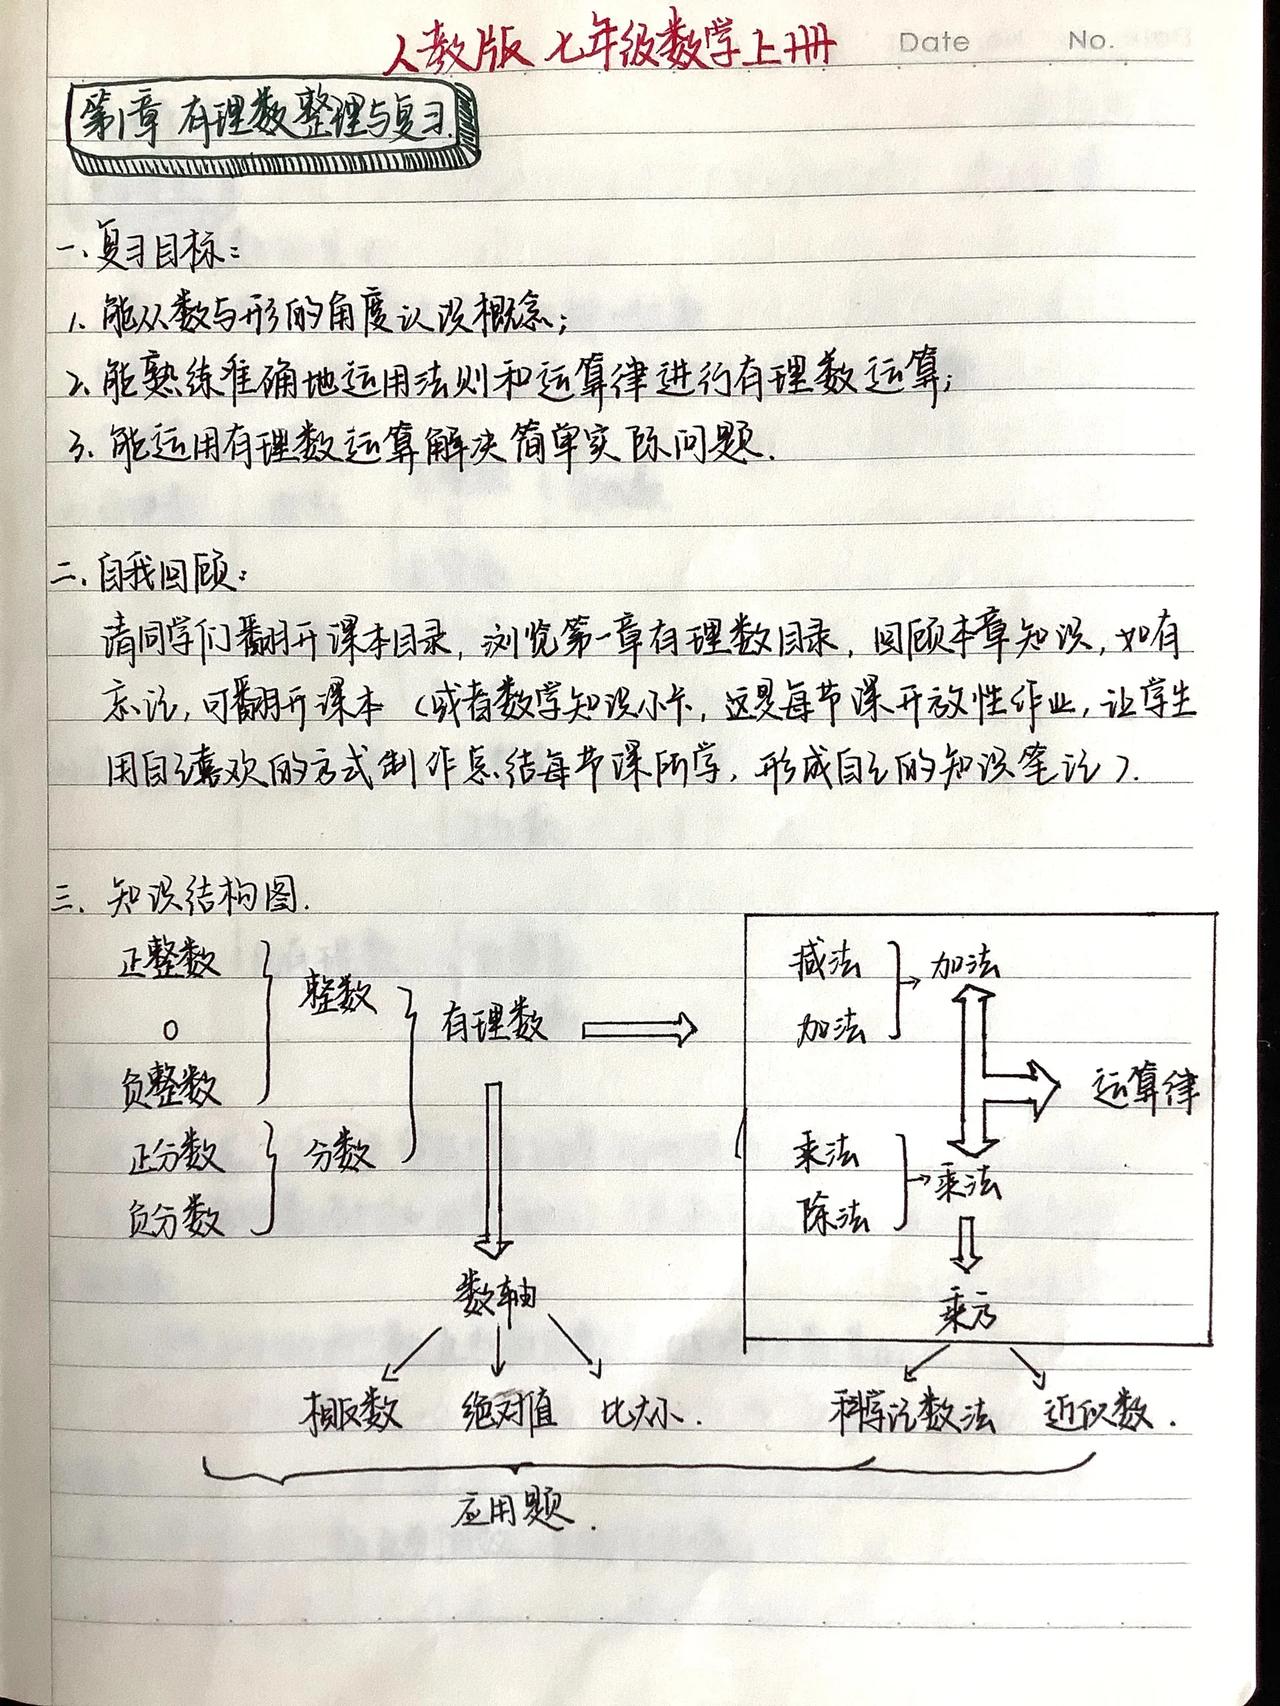 人教版 七年级数学上册
Date No.
第1章 有理数整理与复习.
一、复习目标：
1、能从数与形的角度认识概念；
2、能熟练准确地运用法则和运算律进行有理数运算；
3、能运用有理数运算解决简单实际问题.
二、自我回顾：
请同学们翻开课本目录，浏览第一章有理数目录，回顾本章知识，如有
忘记，可翻开课本（或者数学知识小卡，这是每节课开放性作业，让学生
用自己喜欢的方式制作总结每节课所学，形成自己的知识笔记）.
三、知识结构图.
正整数
0
负整数
整数
正分数
负分数
分数
有理数
数轴
相反数 绝对值 比大小.
减法
加法
加法
运算律
乘法
除法
乘法
乘方
科学记数法 近似数.
应用题.